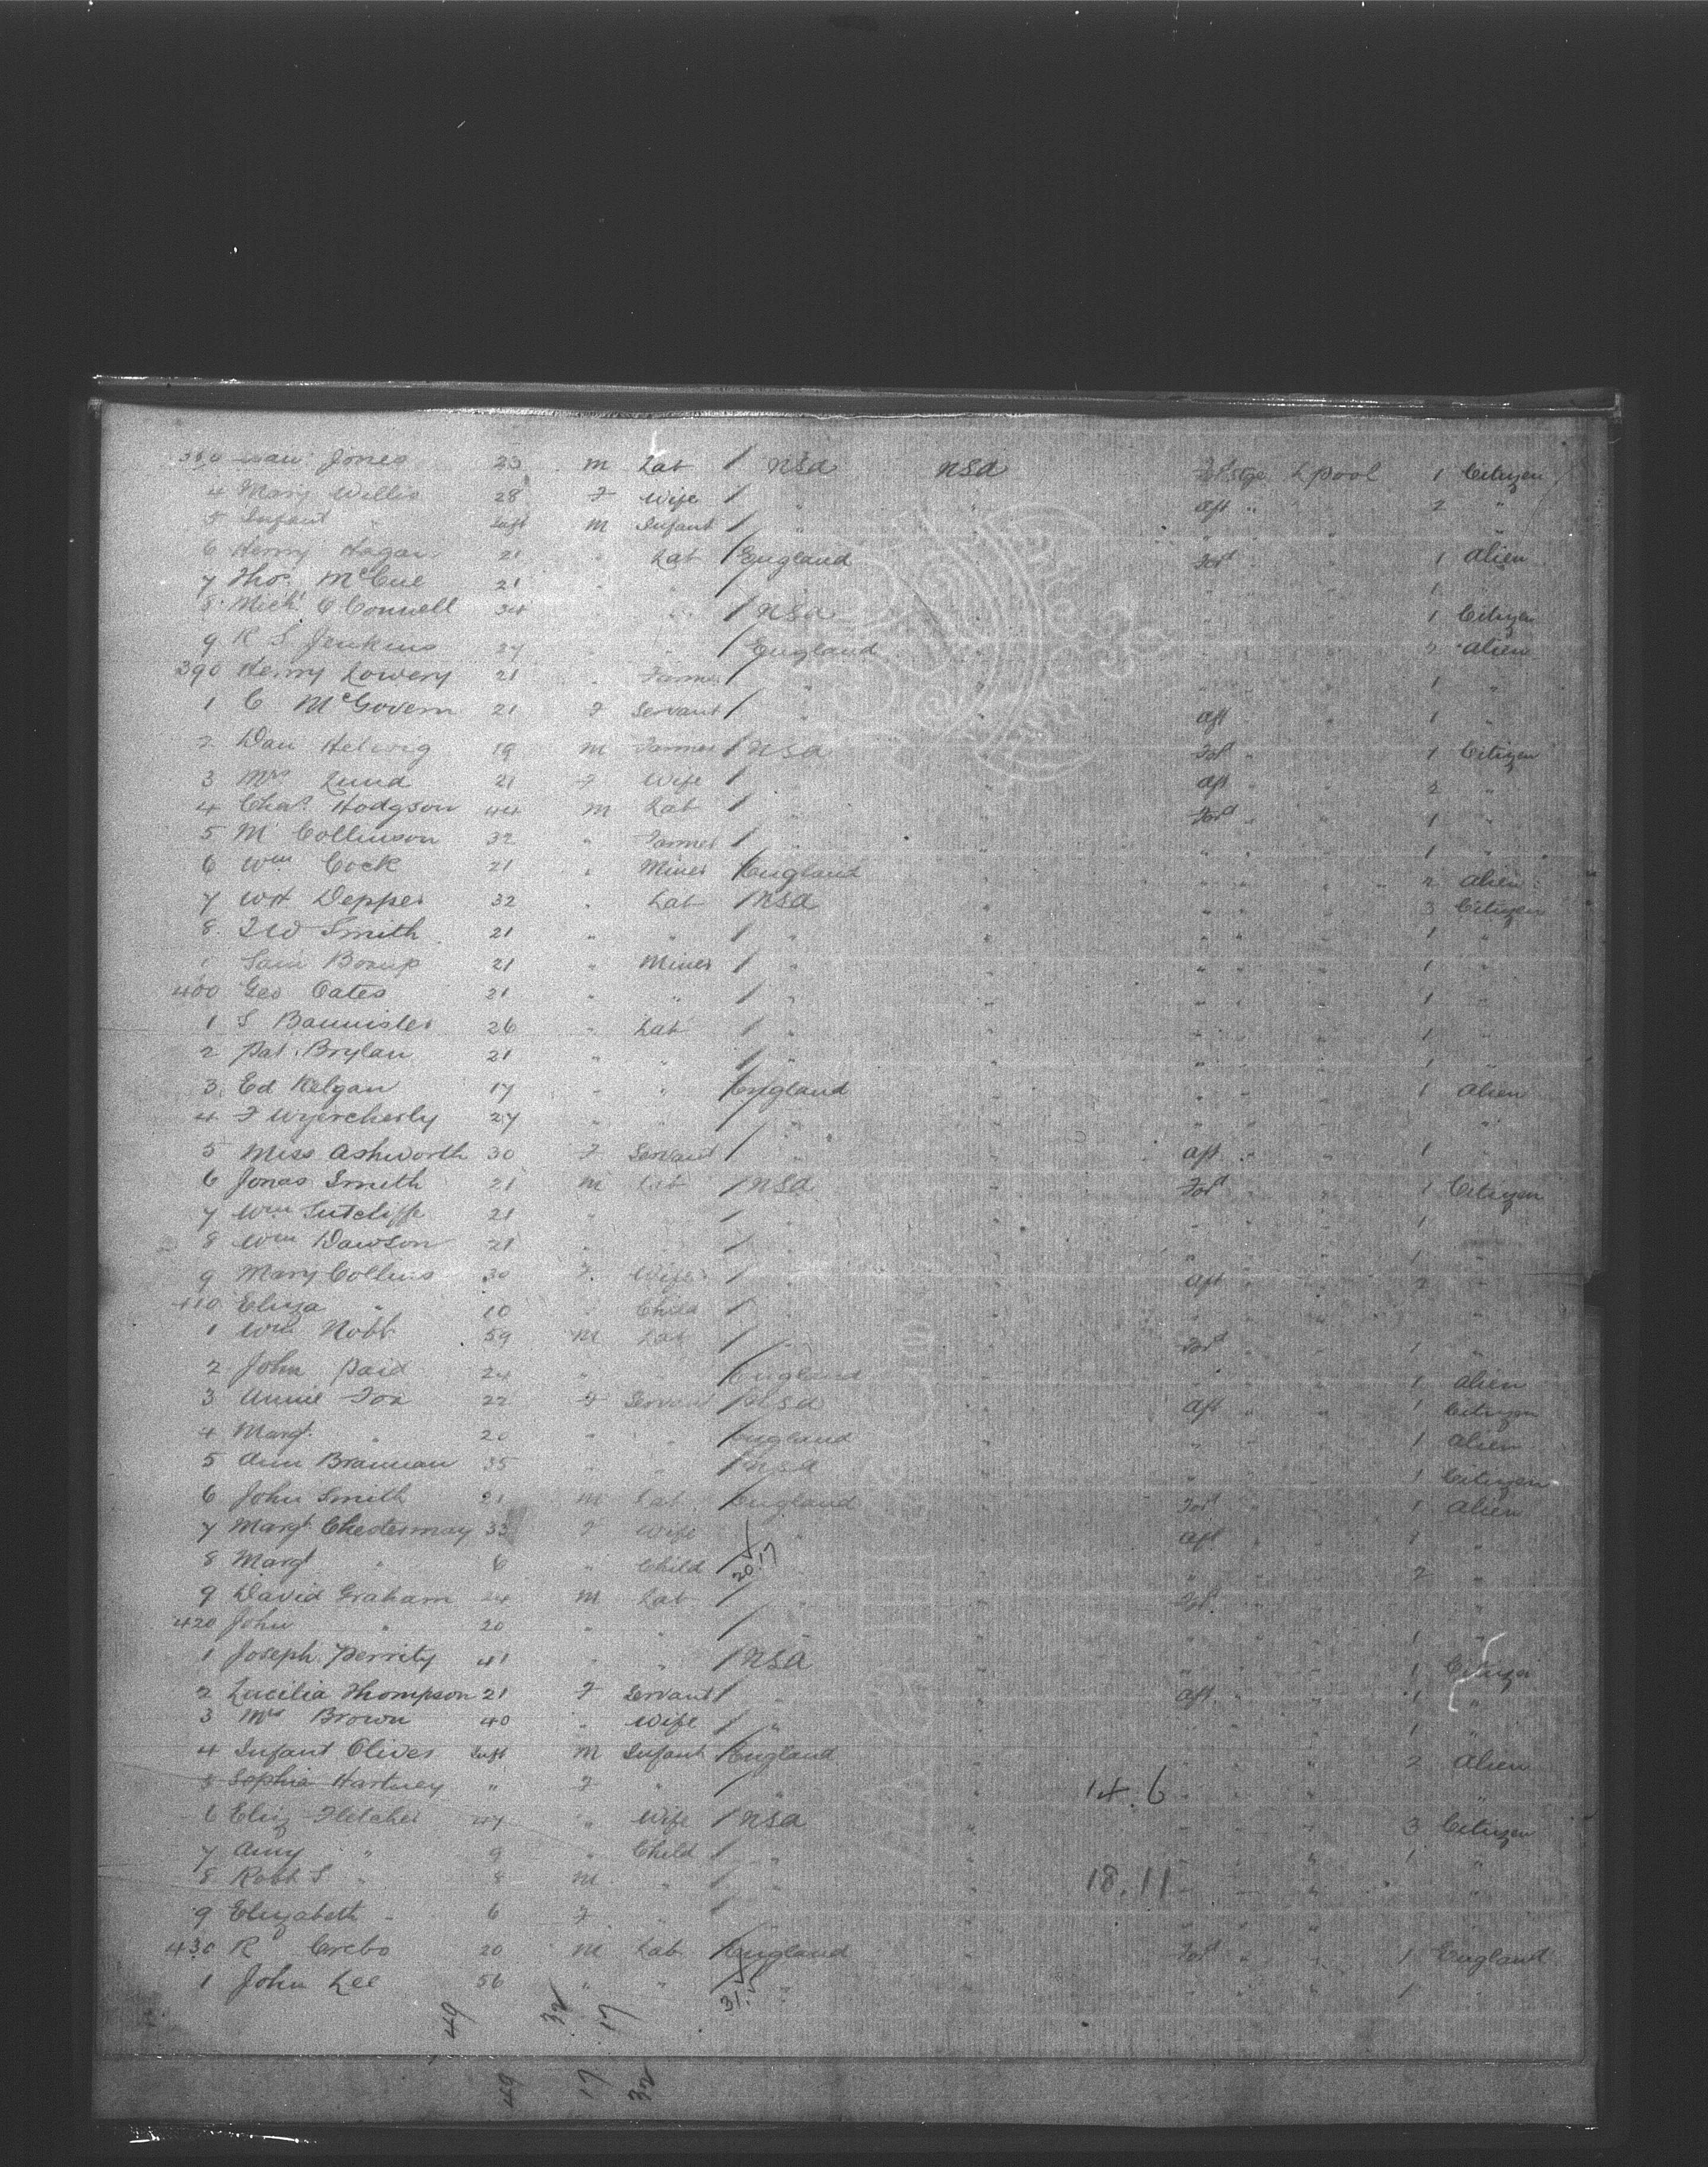 Jones 23 m Lab / USA USA Stge Lpool 1 Citizen
4 Mary Willis 28 F Wife / " " aft " " 2 "
5 Infant " Inft m Infant / " " " "
6 Henry Hagan 21 " Lab / England For'd " 1 alien
7 Thos McCue 21 " " " 1 "
8 Mich. O Connell 34 " " / USA " " 1 Citizen
9 R S Jenkins 27 " " / England " " 2 alien
390 Henry Lowery 21 " Farmer / " " " " 1 "
1 C McGovern 21 F Servant / " " aft " 1 "
2 Dan Helwig 19 m Farmer / USA For'd " 1 Citizen
3 Mrs Lund 21 F Wife / " aft " " 2 "
4 Chas. Hodgson 44 m Lab / " For'd " 1 "
5 M Collinson 32 " Farmer / " " " 1 "
6 Wm Cock 21 " Miner / England " " 2 alien
7 WH Depper 32 " Lab / USA " " " 3 Citizen
8 Smith 21 " " / " " " " 1 "
Sam 21 " Miner / " " " 1 "
400 Geo Oates 21 " " / " " " " 1 "
1 S Bannister 26 " Lab / " " " 1 "
2 Pat. Brylan 21 " " / " " 1 "
3 Ed Kelgan 17 " " / England " " " 1 alien
4 F Wyercherly 27 " " / " " " "
5 Miss Ashworth 30 F Servant / " " aft " " 1 "
6 Jonas Smith 21 m Lab / USA " For'd " " 1 Citizen
7 Wm Sutcliffe 21 " / " " " 1
8 Wm Dawson 21 " / " " " 1 "
9 Mary Collins 30 F Wife / " aft " " 2 "
410 Eliza " 10 " Child / " " " "
1 Wm Nobb 59 m Lab / " For'd " " 1 "
2 John Paid 24 " " / England " " 1 alien
3 Annie Fox 22 F Servant / USA aft " " 1 Citizen
4 Margt. " 20 " " / England " " 1 alien
5 Ann Brannan 35 " " / USA " " 1 Citizen
6 John Smith 21 m Lab / England For'd " 1 alien
7 Margt Chestermay 33 F Wife " aft " 1 "
8 Margt " 6 " Child / 20.17 " " " 2 "
9 David Graham 24 m Lab / " For'd " "
420 John " 20 " " / " " " 1 "
1 Joseph Perrity 41 " " / USA " " " 1 Citizen
2 Lucilia Thompson 21 F Servant / " aft " " 1 "
3 Mrs Brown 40 " Wife / " " " " 1 "
4 Infant Oliver Inft m Infant / England " " 2 Alien
5 Sophie Hartney " F " / " 14.6 " " "
6 Eliz Fletcher 47 " Wife / USA " " " 3 Citizen
7 Amy " 9 " Child / " " " 1 "
8 Robt S. " 8 m " / " 18.11 " " "
9 Elizabeth " 6 F " / " " "
430 R Crebo 20 m Lab / England " For'd " " 1 England
1 John Lee 56 " " / 31.5 " " " 1
49 32 17
49 17 32